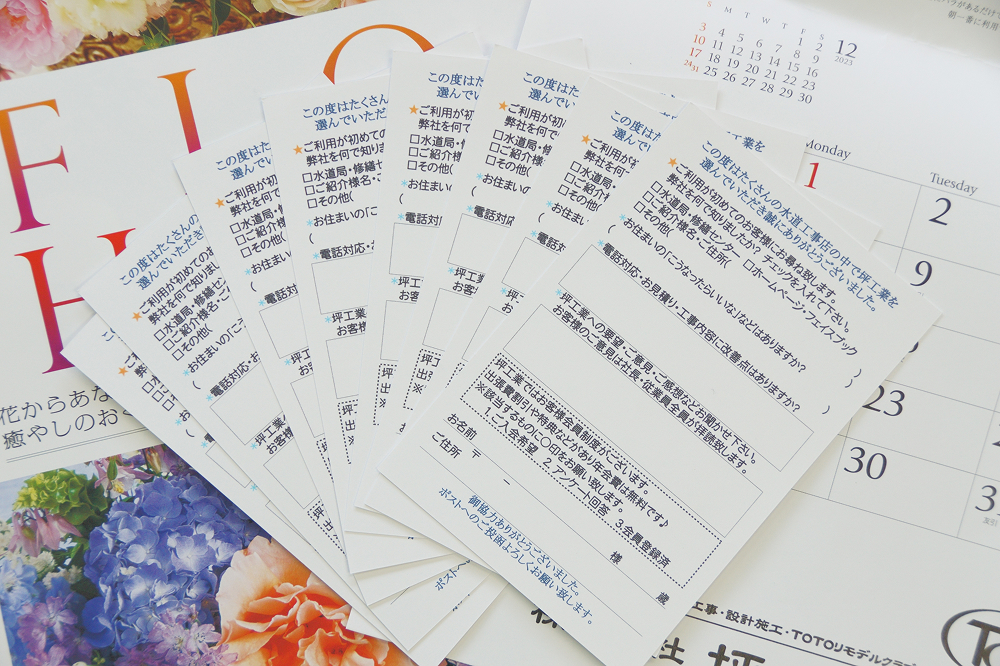 バラがあるだけ
朝一番に利用
S M T W T F S
1 2
3 4 5 6 7 8 9
10 11 12 13 14 15 16
17 18 19 20 21 22 23
24/31 25 26 27 28 29 30
12
2023
Monday
Tuesday
1
2
9
23
30
花からあな
癒やしのお
この度はたくさんの水道工事店の中で坪工業を
選んでいただき誠にありがとうございました。
★ご利用が初めてのお客様にお尋ね致します。
弊社を何で知りましたか? チェックを入れて下さい。
□水道局・修繕センター □ホームページ・フェイスブック
□ご紹介様名・ご住所( )
□その他( )
*お住まいの「こうなったらいいな」などはありますか?
( )
*電話対応・お見積り・工事内容に改善点はありますか?
*坪工業への要望・ご意見・ご感想などお聞かせ下さい。
お客様のご意見は社長・従業員全員が拝読致します。
坪工業ではお客様会員制度がございます。
出張費割引や特典などがあり年会費は無料です♪
※該当するものに○印をお願い致します。
1.ご入会希望 2.アンケート回答 3.会員登録済
お名前 様 歳
ご住所 〒 -
御協力ありがとうございました。
ポストへのご投函よろしくお願い致します。
工事・設計施工・TOTOリモデルクラブ